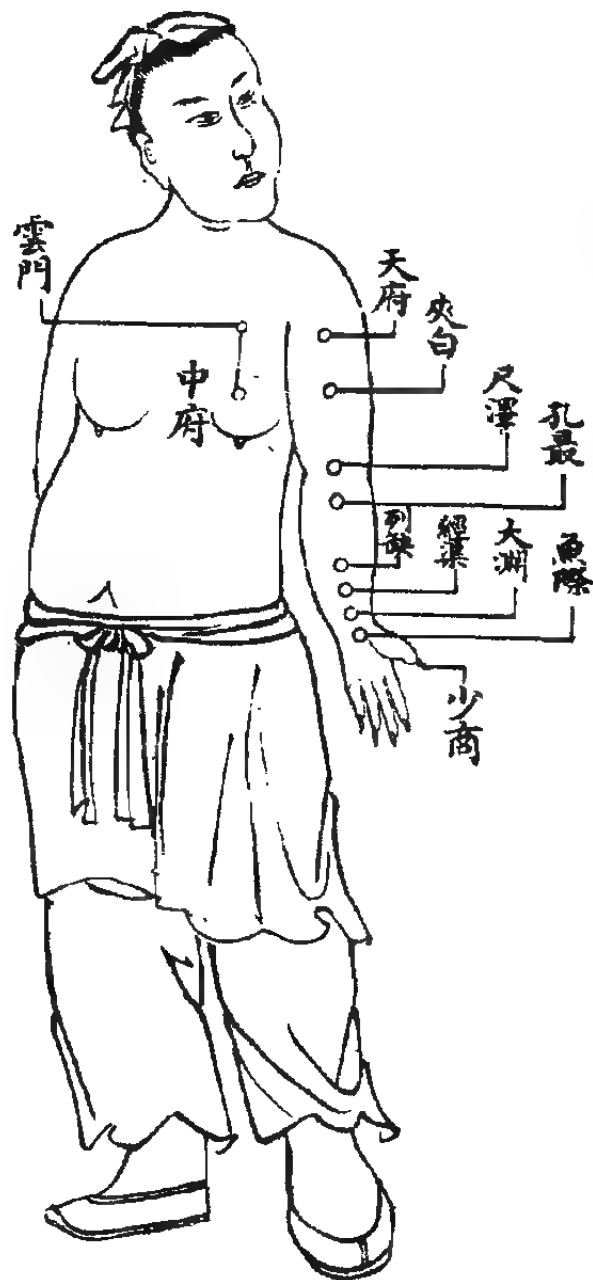 雲門
中府
天府
夾白
尺澤
孔最
列缺
經渠
大淵
魚際
少商